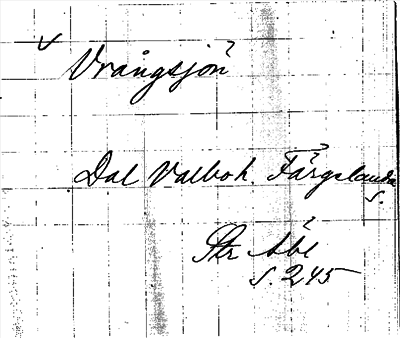 Vrångsjön
Dal Valboh. Färgelanda
s.
Str
s. 245